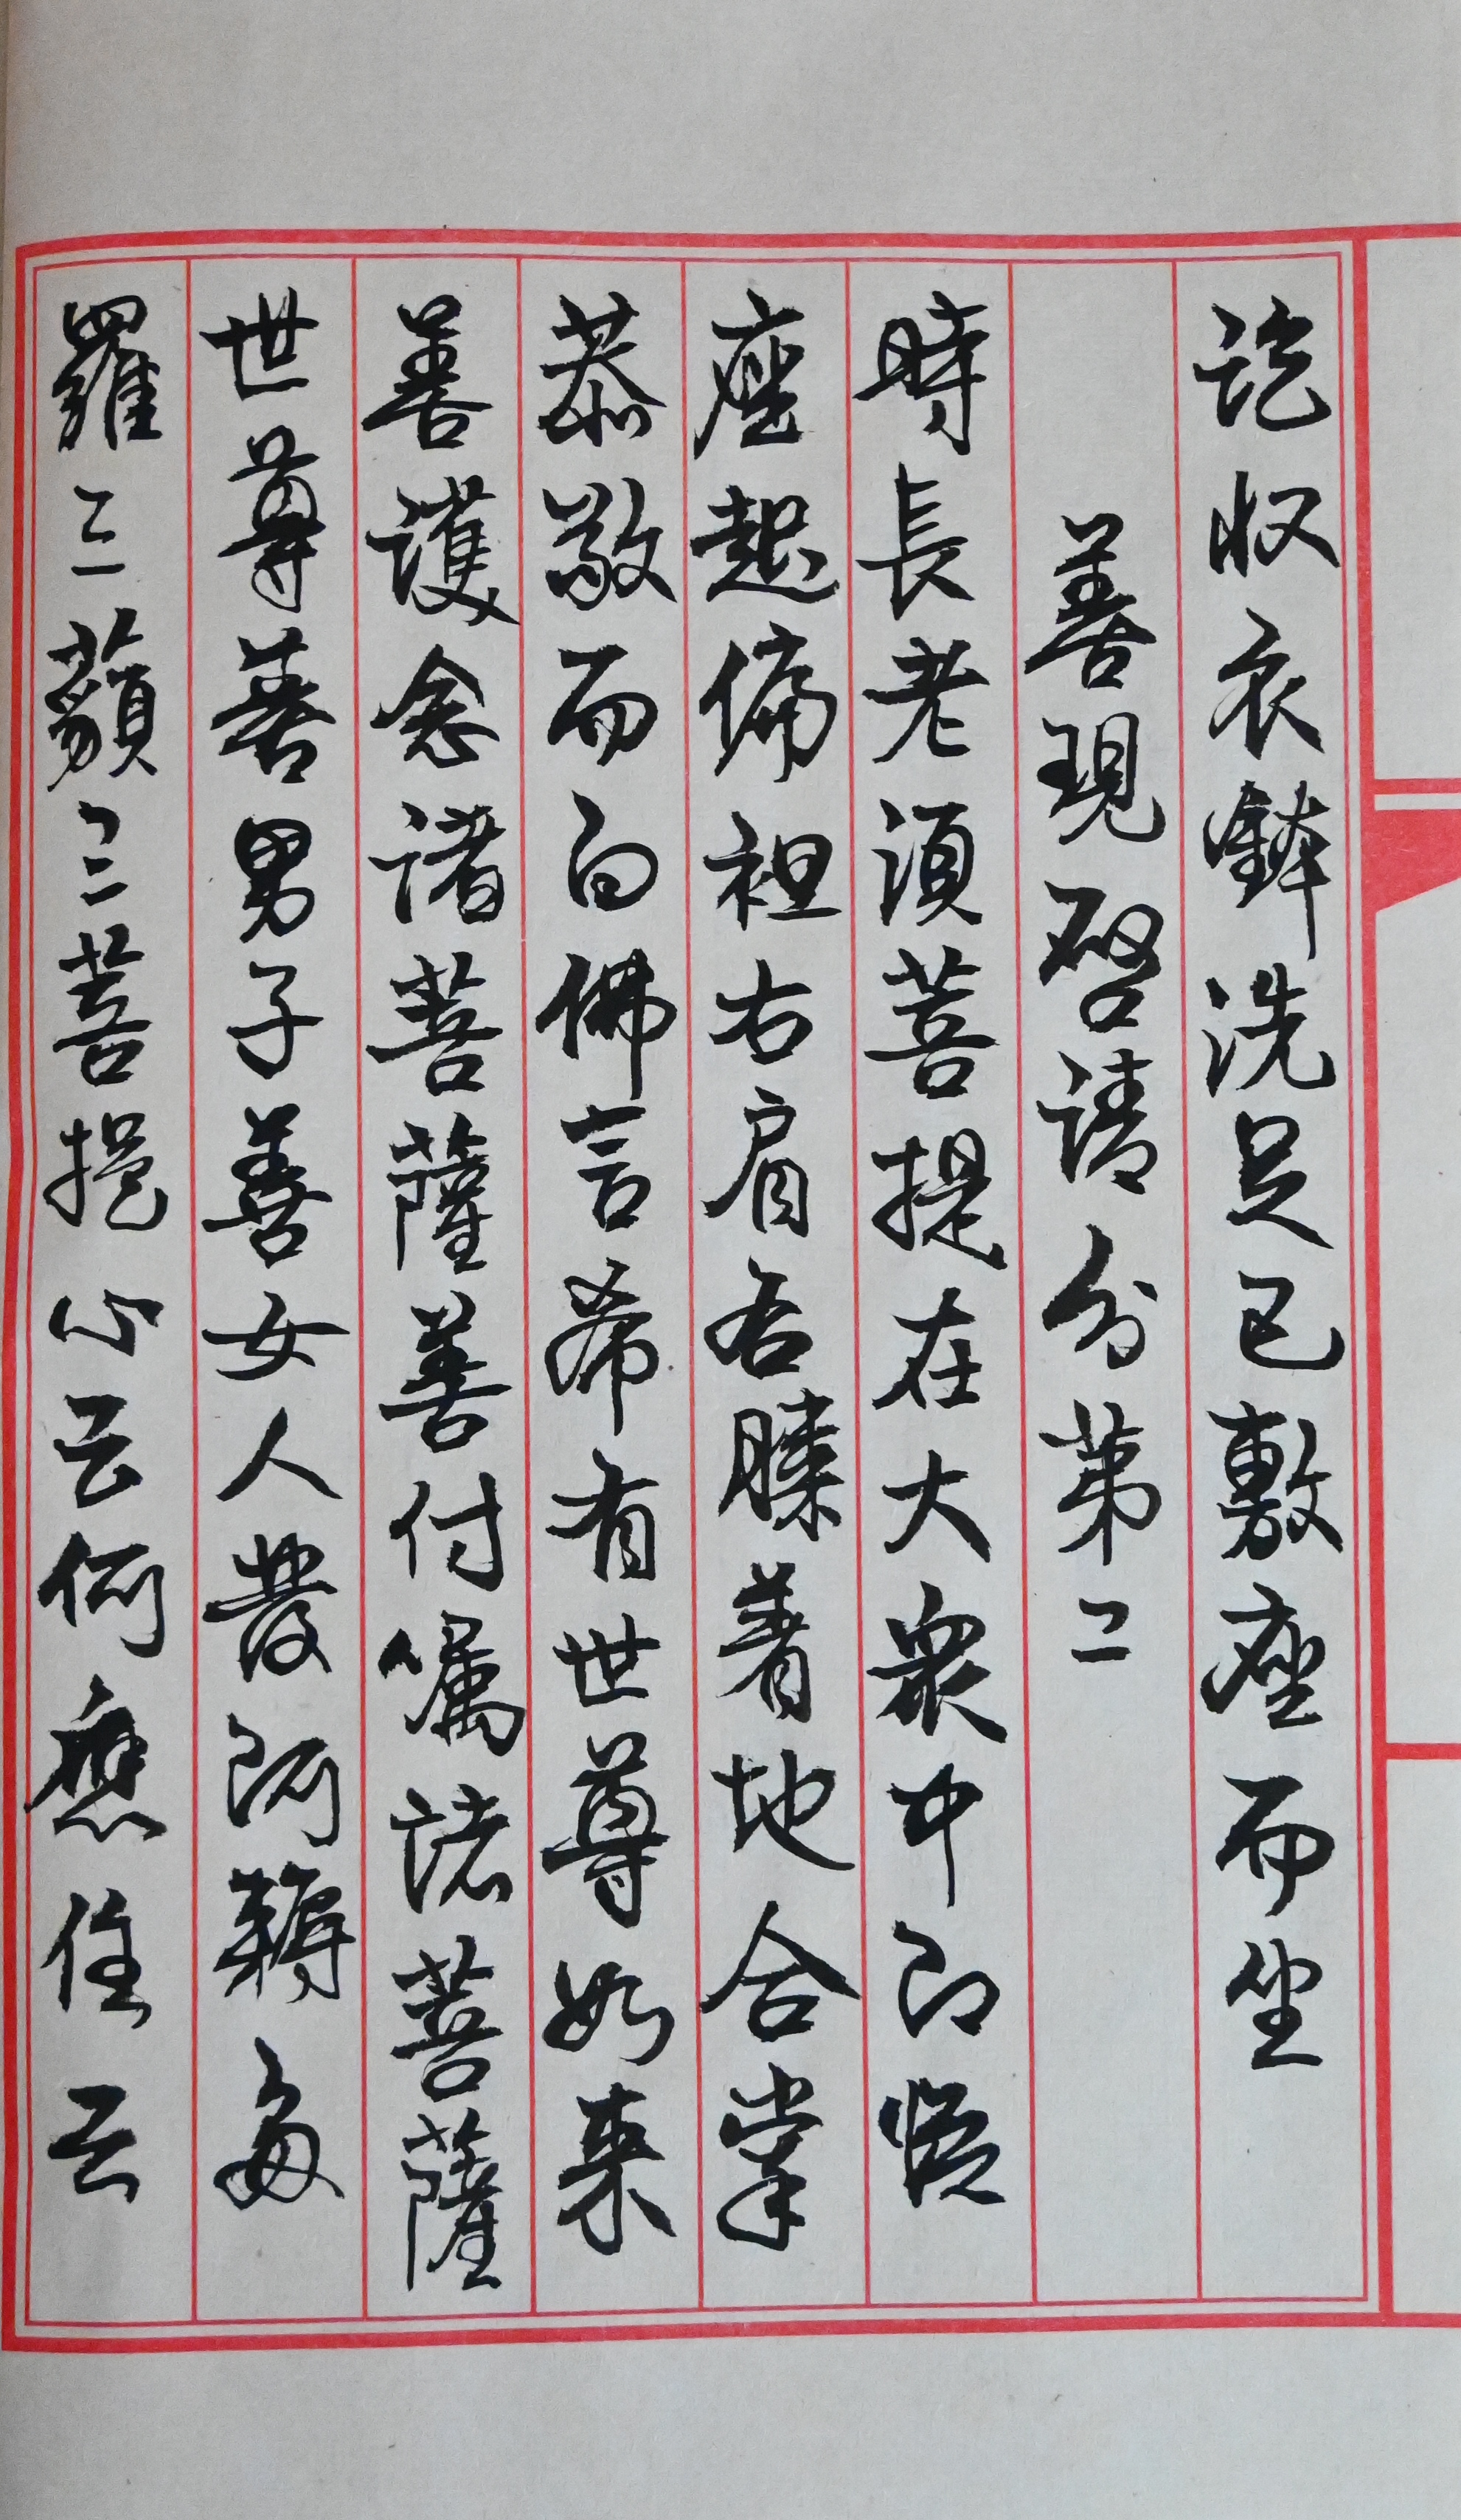 訖收衣鉢洗足已敷座而坐
善現啓請分第二
時長老須菩提在大眾中即從
座起偏袒右肩右膝着地合掌
恭敬而白佛言希有世尊如来
善護念諸菩薩善付囑諸菩薩
世尊善男子善女人發阿耨多
羅三藐三菩提心云何應住云